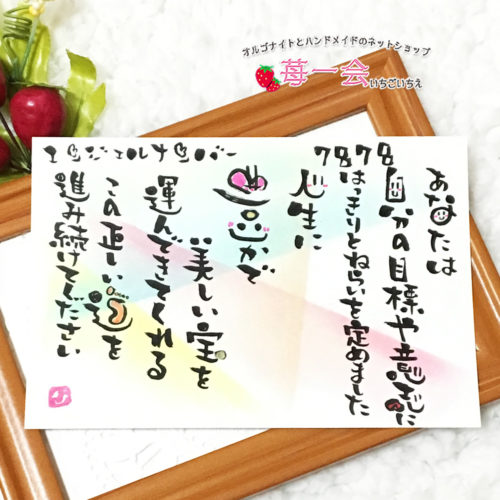 オルゴナイトとハンドメイドのネットショップ
苺一会 いちごいちえ
エンジェルナンバー
7878
あなたは
自分の目標や意志に
はっきりとねらいを定めました
人生に
豊かで
美しい宝を
運んできてくれる
この正しい道を
進み続けてください